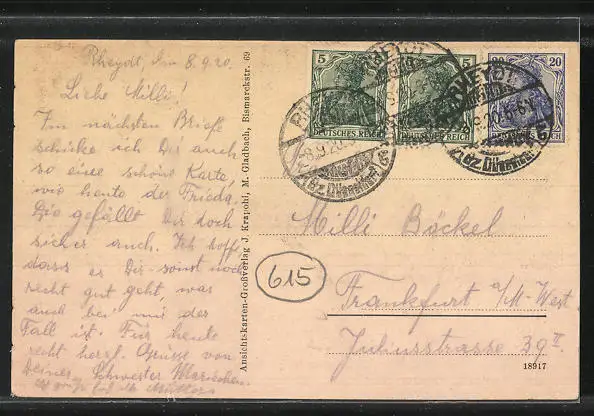 Rheydt, den 8.9.20.
Liebe Milli!
Im nächsten Briefe
schicke ich Dir auch
so eine schöne Karte,
wie heute der Frieda.
Die gefällt Dir doch
sicher auch. Ich hoffe
dass es Dir sonst noch
recht gut geht, was
auch bei mir der
Fall ist. Für heute
recht herzl. Grüsse von
Deiner Schwester Mariechen.
Ansichtskarten-Großverlag J. Krapohl, M. Gladbach, Bismarckstr. 69
5
5
20
DEUTSCHES REICH
REICH
RHEYDT
8.9.20
Milli Böckel
615
Frankfurt a/M-West
Juliusstrasse 39 II
18917